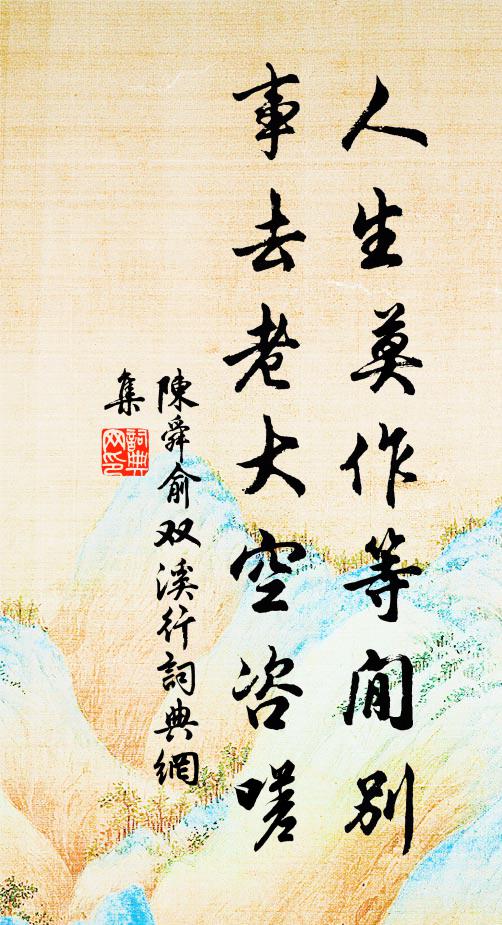 人生莫作等閒別
事去老大空咨嗟
陳舜俞双溪行詞典網
集
詞典
网印